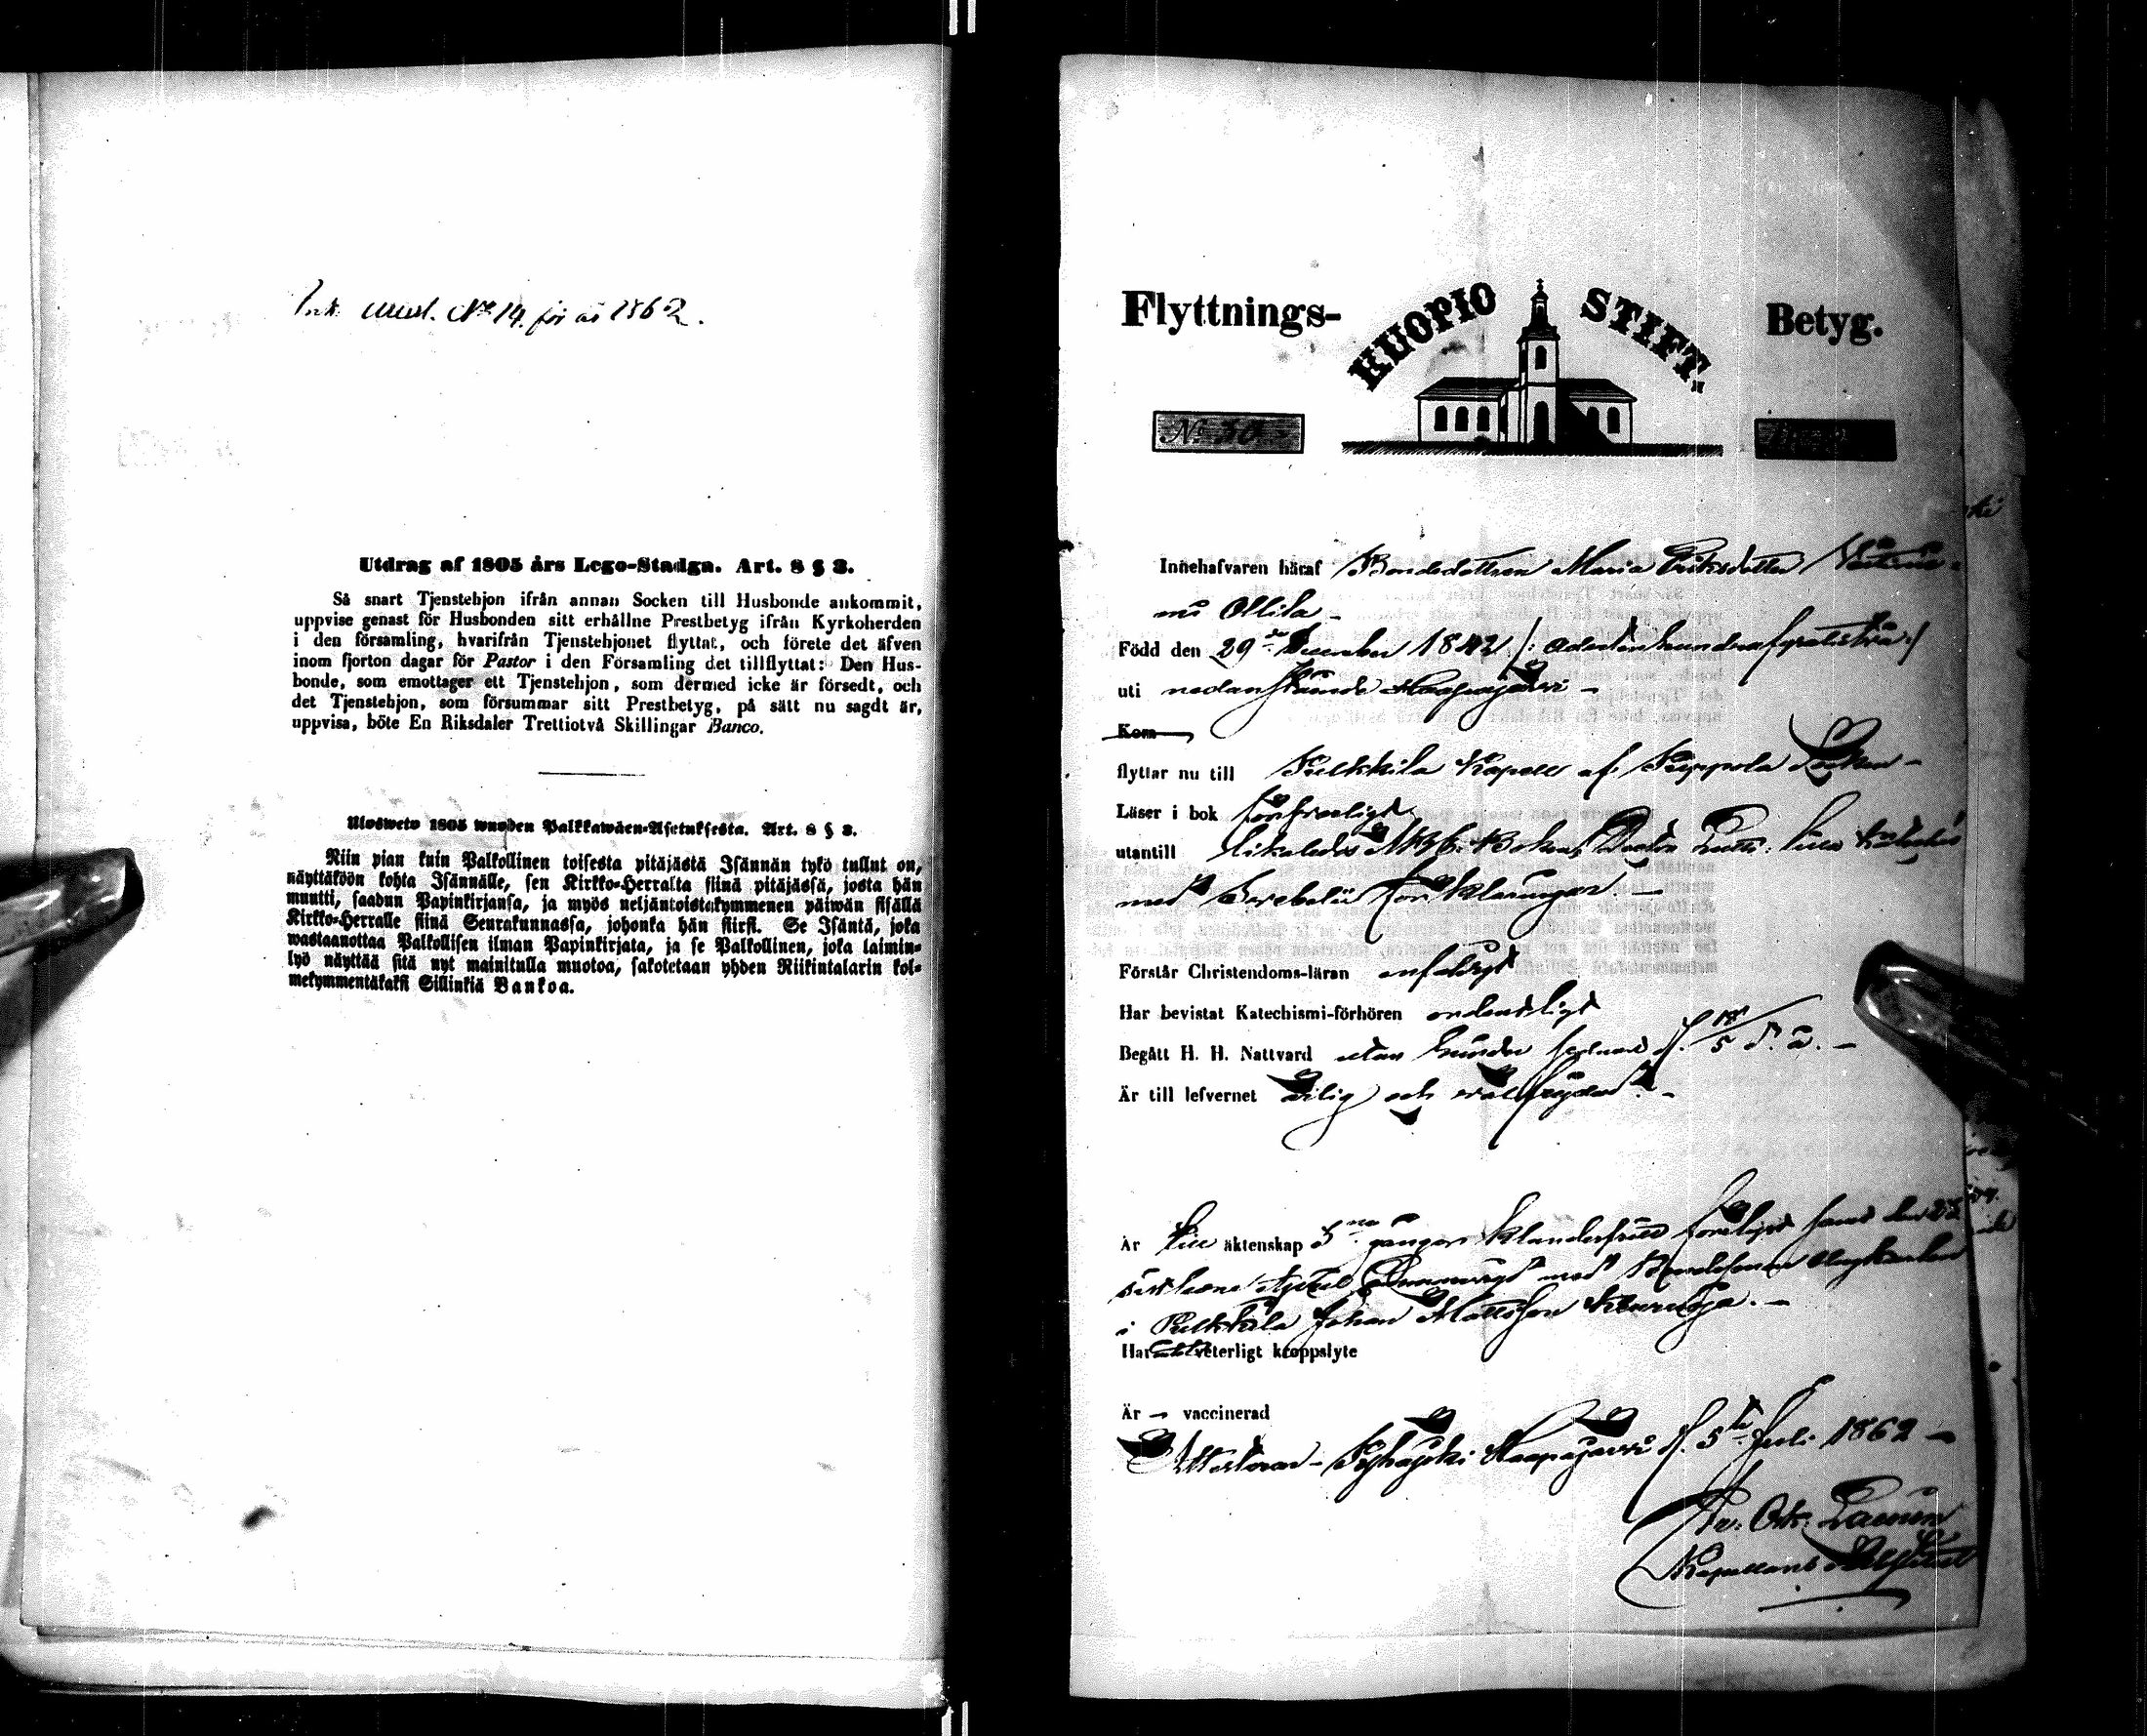 Ink. attest. No 14. för år 1862.
Utdrag af 1805 års Lego-Stadga. Art. 8 § 3.
Så snart Tjenstehjon ifrån annan Socken till Husbonde ankommit,
uppvise genast för Husbonden sitt erhållne Prestbetyg ifrån Kyrkoherden
i den församling, hvarifrån Tjenstehjonet flyttat, och förete det äfven
inom fjorton dagar för Pastor i den Församling det tillflyttat: Den Hus-
bonde, som emottager ett Tjenstehjon, som dermed icke är försedt, och
det Tjenstehjon, som försummar sitt Prestbetyg, på sätt nu sagdt är,
uppvisa, böte En Riksdaler Trettiotvå Skillingar Banco.
Ulosweto 1805 wuoden Palkkawäen-Asetuksesta. Art. 8 § 3.
Niin pian kuin Palkollinen toisesta pitäjästä Isännän tykö tullut on,
näyttäköön kohta Isännälle, sen Kirkko-Herralta siinä pitäjässä, josta hän
muutti, saadun Papinkirjansa, ja myös neljäntoistakymmenen päiwän sisällä
Kirkko-Herralle siinä Seurakunnassa, johonka hän siirsi. Se Isäntä, joka
wastaanottaa Palkollisen ilman Papinkirjata, ja se Palkollinen, joka laimin-
lyö näyttää sitä nyt mainitulla muotoa, sakotetaan yhden Riikintalarin kol-
mekymmentäkaksi Sillinkiä Bankoa.
Flyttnings- KUOPIO STIFT. Betyg.
No 30
Innehafvaren häraf Bondedottren Maria Eriksdotter
Ollila
Född den 29de December 1842 /: adertonhundrafyratiotvå :/
uti nedanstående Haapajärvi
Kom
flyttar nu till Pulkkila Kapell af Piippola Socken
Läser i bok försvarligt
utantill likaledes Abc-Boken, Doctor Luth: lilla Katches
med Svebelii förklaringar.
Förstår Christendoms-läran enfaldigt
Har bevistat Katechismi-förhören ordentligt
Begått H. H. Nattvard utan hinder sednast d. 18/5 d. å.
Är till lefvernet ärlig och välfrejdad.
Är till äktenskap 3ne gånger klanderfritt förelyst samt den
med Bondesonen
i Pulkkila Johan Mattsson
Har veterligt kroppslyte
Är vaccinerad
Attesterar Pyhäjoki Haapajärvi d. 5te Juli 1862